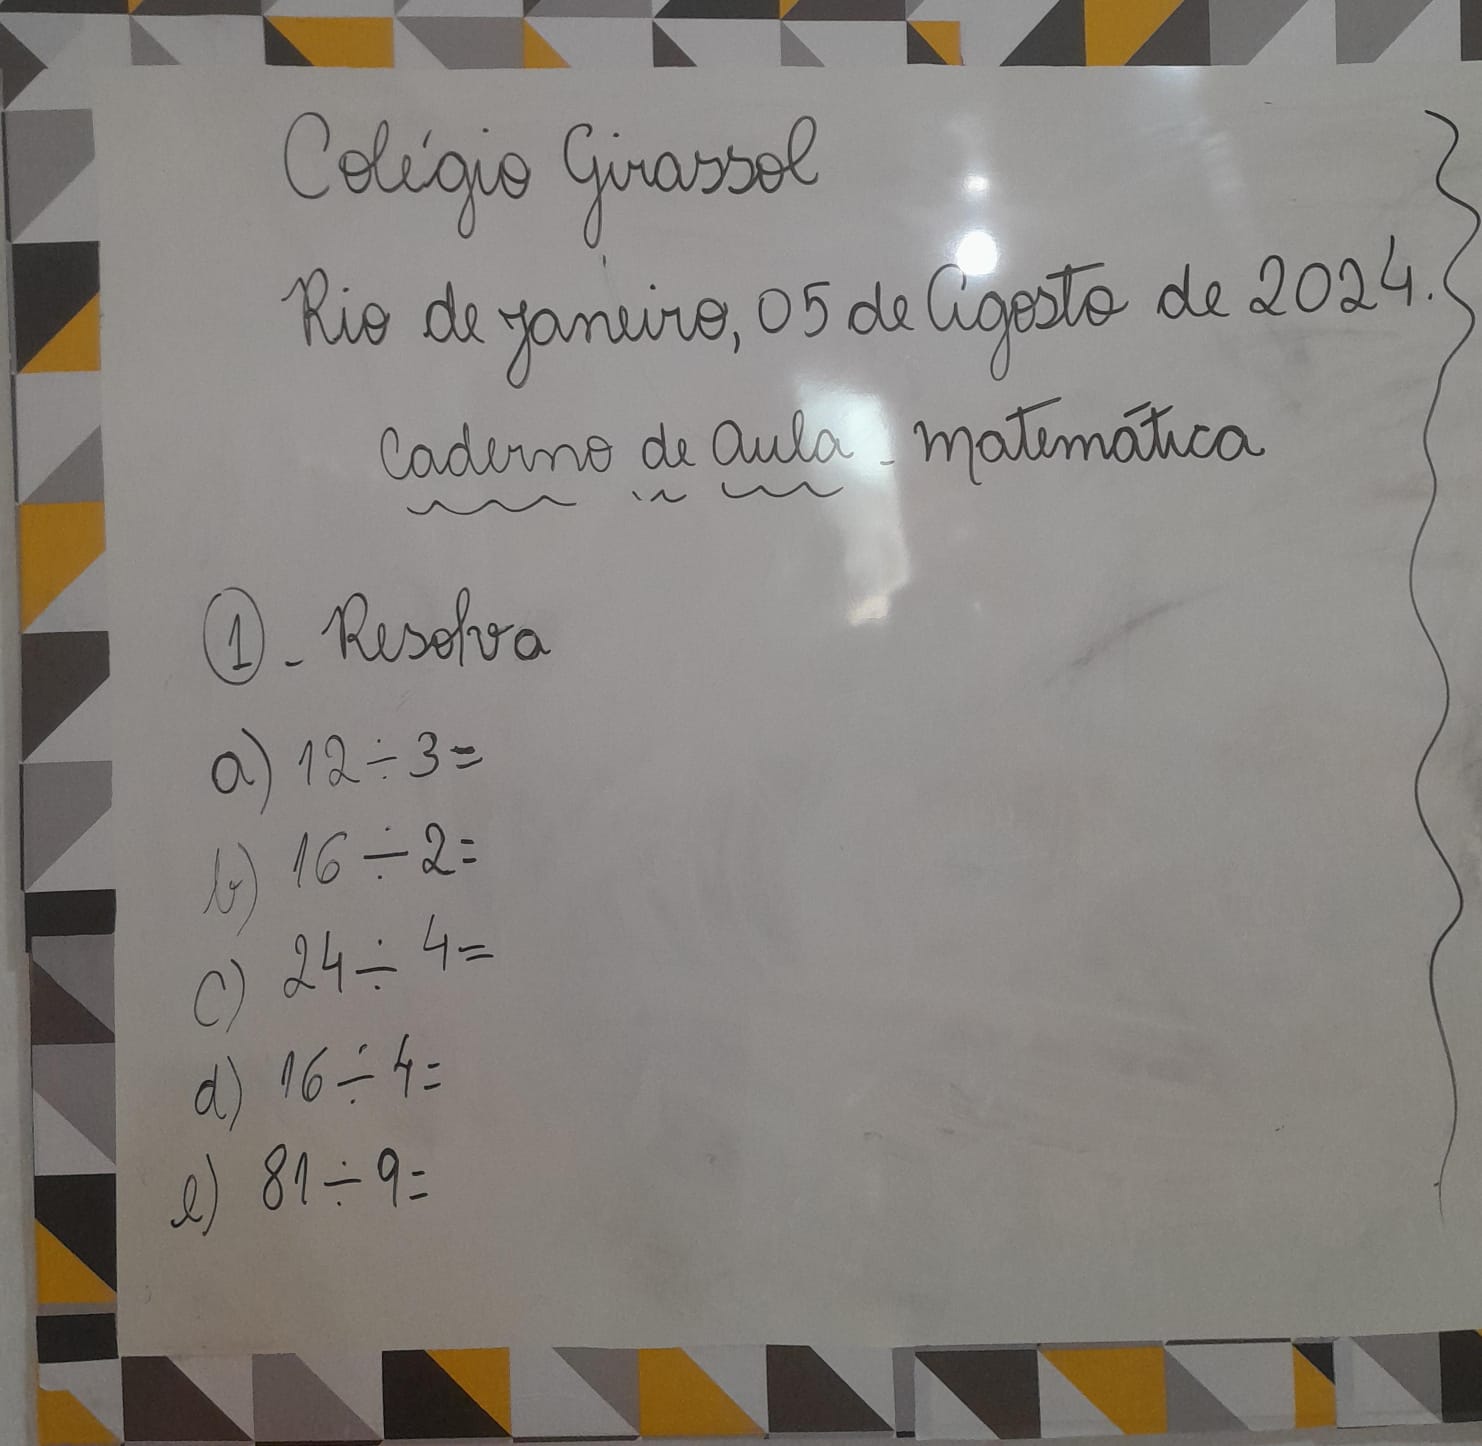 Colégio Girassol
Rio de janeiro, 05 de Agosto de 2024.
Caderno de Aula - matemática
1 - Resolva
a) 12 ÷ 3 =
b) 16 ÷ 2 =
c) 24 ÷ 4 =
d) 16 ÷ 4 =
e) 81 ÷ 9 =